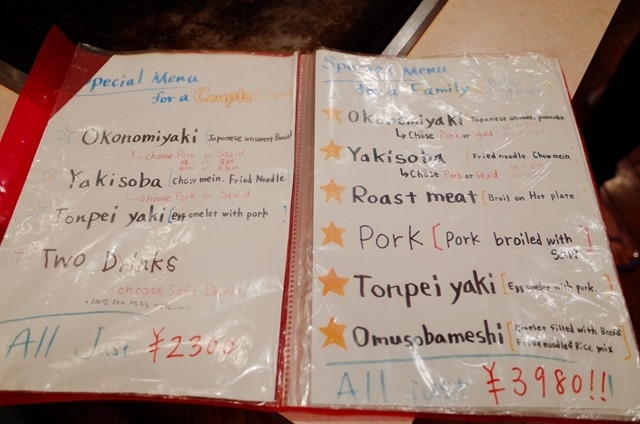 Special Menu
for a Couple
Okonomiyaki [Japanese unsweet Pancake
↳ choose Pork or Squid
Yakisoba [chow mein. Fried Noodle
↳ choose Pork or Squid
Tonpei yaki [egg omelet with pork]
Two Drinks
choose Soft Drinks
All Just ¥2300
Special Menu
for a Family
Okonomiyaki [Japanese unsweet pancake
↳ Chose Pork or Squid
Yakisoba [Fried noodle. Chow mein
↳ Chose Pork or Squid
Roast meat [Broil on Hot plate
Pork [Pork broiled with Salt]
Tonpei yaki [Egg omelet with pork.]
Omusobameshi [omelet filled with Beef&
Fried noodle& Rice mix]
All just ¥3980!!!